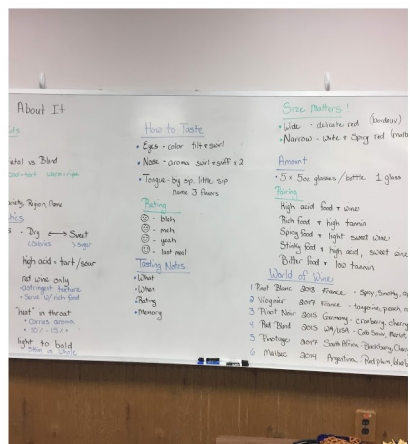 About It
etal vs Blend
cool=tart warm=ripe
ariety, Region, Name
Dry ⟷ Sweet
Calories > sugar
high acid = tart/sour
red wine only
• astringent texture
• Serve w/ rich food
"heat" in throat
• Carries aroma
light to bold
Skim or whole
How to Taste
• Eyes - color tilt + swirl
• Nose - aroma swirl + sniff x 2
• Tongue - by sip, little sip
name 3 flavors
Rating
- bleh
- meh
- yeah
Tasting Notes
• What
• When
• Rating
• Memory
Size Matters!
• Wide - delicate red (bordeux)
• Narrow - white + Spicy red
Amount
• 5 x 5oz glasses / bottle 1 glass
Pairing
High acid food + wine
Rich food + high tannin
Spicy food + light sweet wine
Stinky food + high acid, sweet wine
Bitter food + low tannin
World of Wine
1 Pinot Blanc 2013 France - Spicy, Smoky,
2 Viognier 2017 France - tangerine, peach,
3 Pinot Noir 2015 Germany - cranberry, cherry
4 Red Blend 2015 WA/USA - Cab Sauv, Merlot,
5 Pinotage 2017 South Africa - Blackberry,
6 Malbec 2014 Argentina - Red plum,